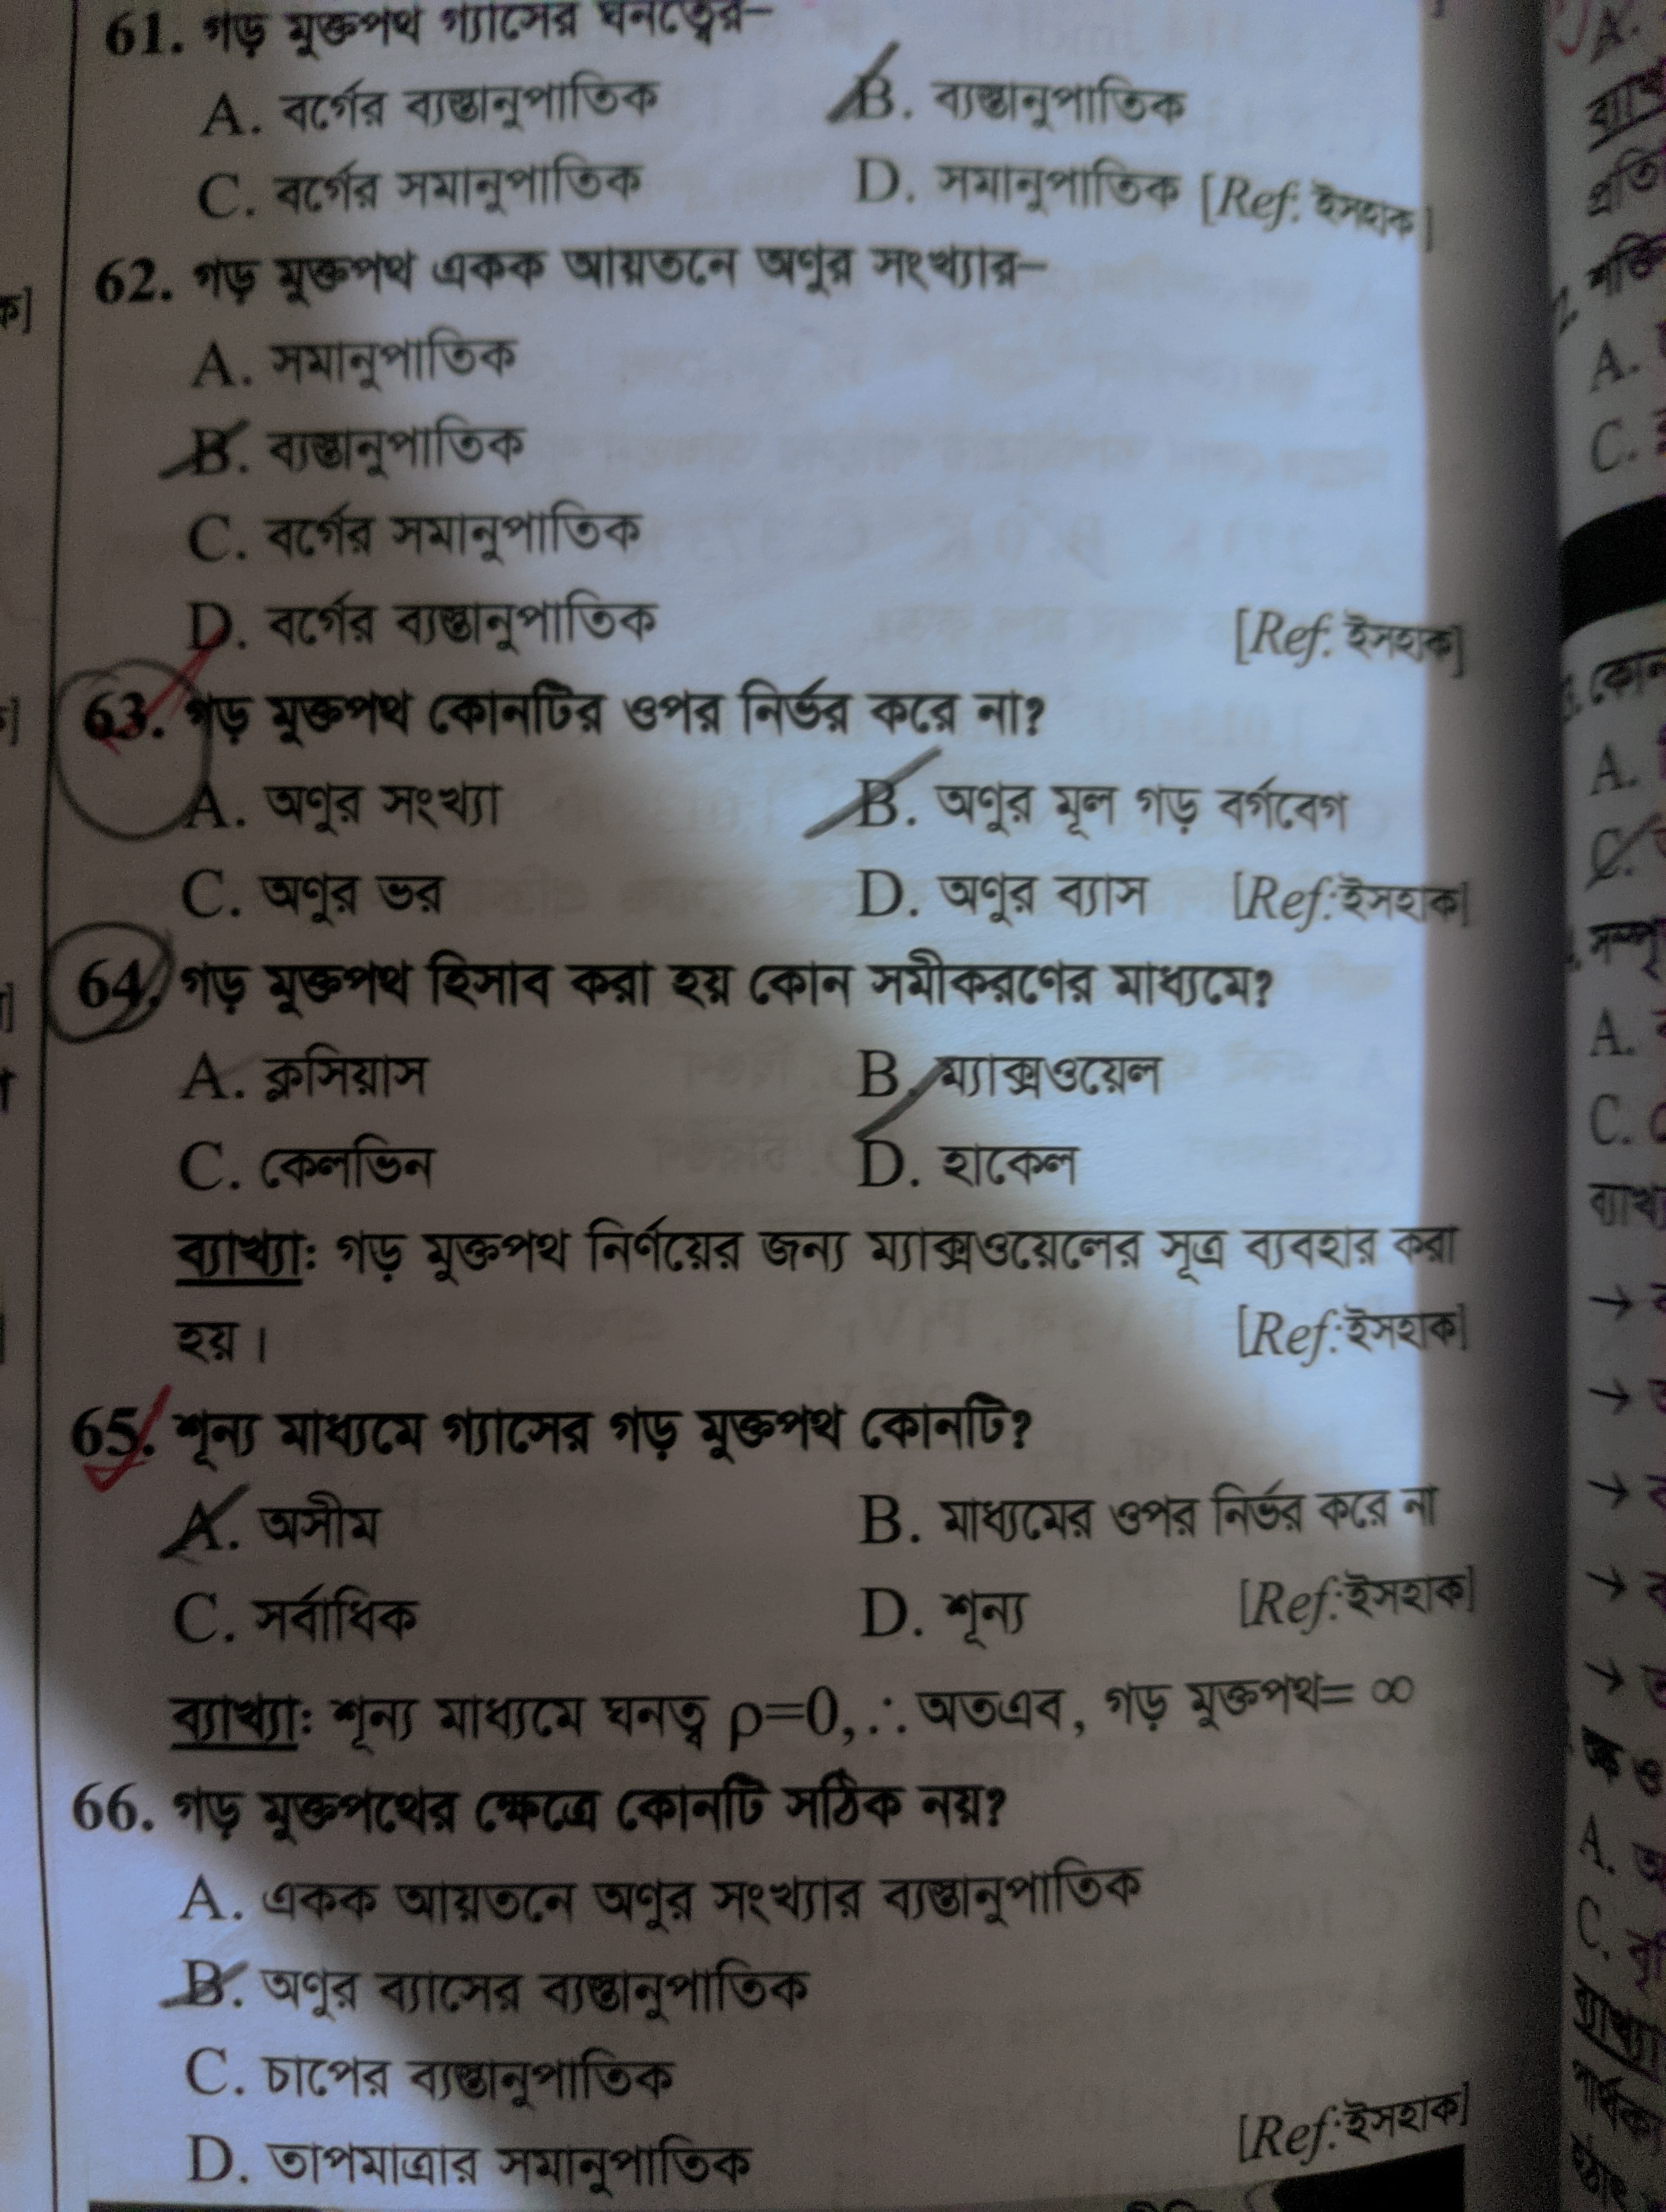 61. গড় মুক্তপথ গ্যাসের ঘনত্বের–
A. বর্গের ব্যস্তানুপাতিক B. ব্যস্তানুপাতিক
C. বর্গের সমানুপাতিক D. সমানুপাতিক [Ref: ইসহাক]
62. গড় মুক্তপথ একক আয়তনে অণুর সংখ্যার–
A. সমানুপাতিক
B. ব্যস্তানুপাতিক
C. বর্গের সমানুপাতিক
D. বর্গের ব্যস্তানুপাতিক [Ref: ইসহাক]
63. গড় মুক্তপথ কোনটির ওপর নির্ভর করে না?
A. অণুর সংখ্যা B. অণুর মূল গড় বর্গবেগ
C. অণুর ভর D. অণুর ব্যাস [Ref: ইসহাক]
64. গড় মুক্তপথ হিসাব করা হয় কোন সমীকরণের মাধ্যমে?
A. ক্লসিয়াস B. ম্যাক্সওয়েল
C. কেলভিন D. হাকেল
ব্যাখ্যা: গড় মুক্তপথ নির্ণয়ের জন্য ম্যাক্সওয়েলের সূত্র ব্যবহার করা
হয়। [Ref: ইসহাক]
65. শূন্য মাধ্যমে গ্যাসের গড় মুক্তপথ কোনটি?
A. অসীম B. মাধ্যমের ওপর নির্ভর করে না
C. সর্বাধিক D. শূন্য [Ref: ইসহাক]
ব্যাখ্যা: শূন্য মাধ্যমে ঘনত্ব ρ=0, ∴ অতএব, গড় মুক্তপথ= ∞
66. গড় মুক্তপথের ক্ষেত্রে কোনটি সঠিক নয়?
A. একক আয়তনে অণুর সংখ্যার ব্যস্তানুপাতিক
B. অণুর ব্যাসের ব্যস্তানুপাতিক
C. চাপের ব্যস্তানুপাতিক
D. তাপমাত্রার সমানুপাতিক [Ref: ইসহাক]